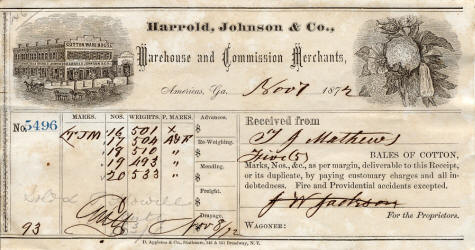 Harrold, Johnson & Co.,
COTTON WAREHOUSE
HARROLD JOHNSON & CO
Warehouse and Commission Merchants,
Americus, Ga. Nov 7 1872
No. 5496
MARKS. NOS. WEIGHTS. P. MARKS.
TJM 16 501 X
17 504
18 510 "
19 493 "
20 533 "
Advances.
$
Re-Weighing.
$
Mending.
$
Freight.
$
Drayage.
$
93
Nov 8/72
Received from
T J Mathews
Five (5) BALES OF COTTON,
Marks, Nos., &c., as per margin, deliverable to this Receipt,
or its duplicate, by paying customary charges and all in-
debtedness. Fire and Providential accidents excepted.
J W Jackson
For the Proprietors.
WAGONER:
D. Appleton & Co., Stationers, 549 & 551 Broadway, N.Y.